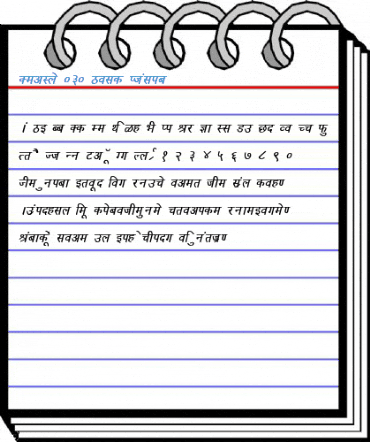 क्मअस्ले ०३० ठवसक प्जंसपब
। ठइ ब्ब क्क म्म र्थ ळह भै प्प श्रर ज्ञा स्स डउ छद व्व च्च फु
ज्ज न्न टअॅ ग्ग १ २ ३ ४ ५ ६ ७ ८ ९ ०
जीम ुनपबा इतवूद विग रनउचे वअमत जीम स्रंल कवहण्
।उंपदहसल मिू कपेबवजीमुनमे चतवअपकम रनामइवगमेण्
श्रंबाकूे सवअम उल इपहे चीपदग वि ुनंतज्रण्